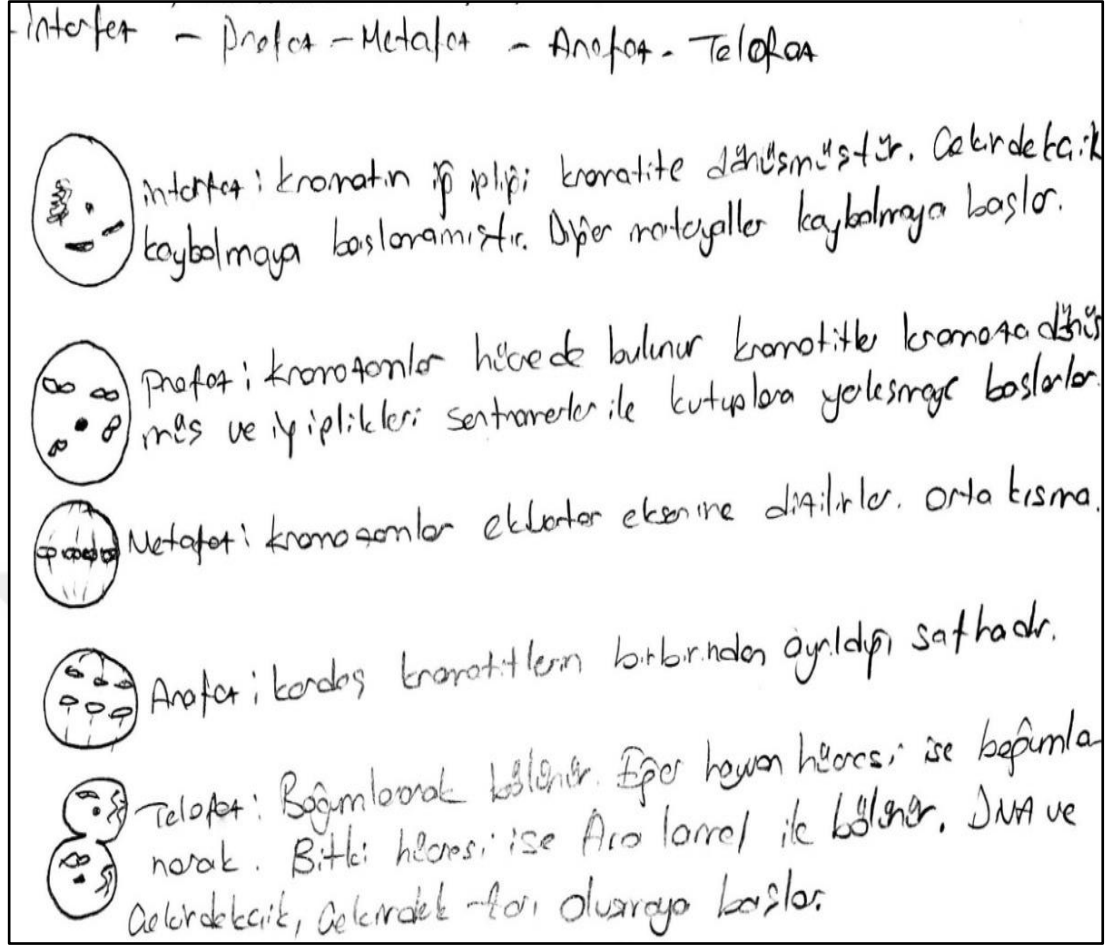 İnterfaz - Profaz - Metafaz - Anafaz - Telofaz
İnterfaz: kromatin ip ipliği kromatite dönüşmüştür. Çekirdekçik
kaybolmaya başlamamıştır. Diğer materyaller kaybolmaya başlar.
Profaz: kromozomlar hücrede bulunur kromotitler kromoza dönüş
müş ve iğ iplikleri sentromerler ile kutuplara yerleşmeye başlarlar.
Metafaz: kromozomlar ekbator eksenine dizilirler. orta kısma.
Anafaz: kardeş kromatitlerin birbirinden ayrıldığı safhadır.
Telofaz: Boğumlanarak bölünür. Eğer hayvan hücresi ise boğumla
narak. Bitki hücresi ise Ara lamel ile bölünür. DNA ve
Çekirdekcik, Çekirdek zarı oluşmaya başlar.